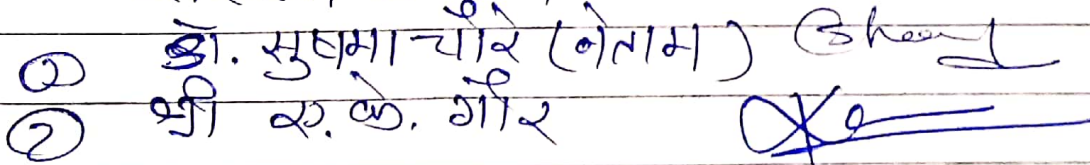 ① डॉ. सुषमा चौरे (नेताम)
② श्री ए. के. गौर